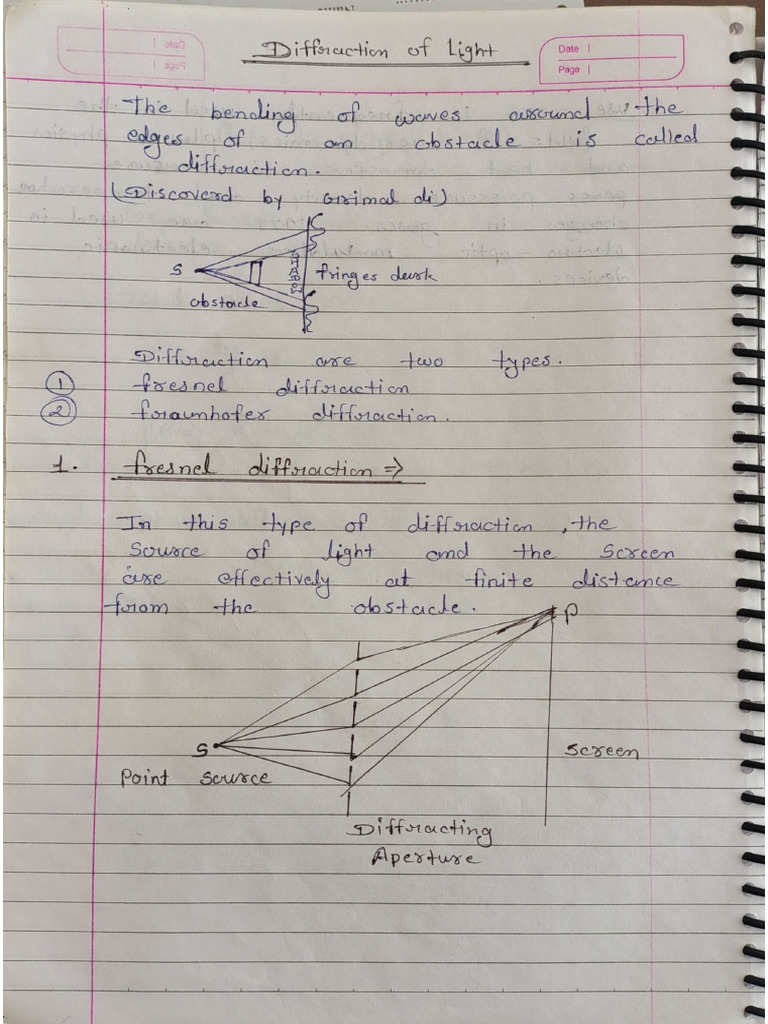 Diffraction of Light
Date
Page
The bending of waves around the
edges of an obstacle is called
diffraction.
(Discoverd by Grimal di)
S
fringes dark
obstacle
Diffraction are two types.
1 fresnel diffraction
2 fraunhofer diffraction.
1. fresnel diffraction ⇒
In this type of diffraction, the
source of light and the screen
are effectively at finite distance
from the obstacle.
P
S
Screen
Point source
Diffracting
Aperture